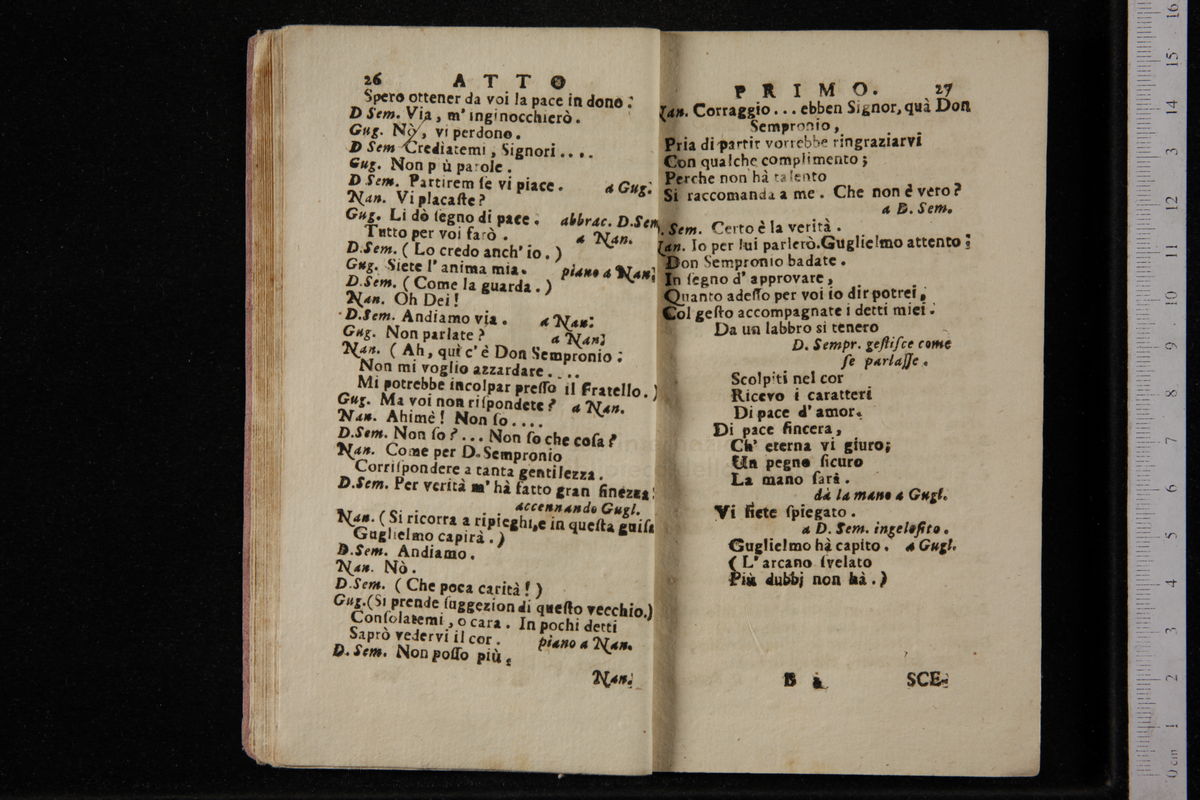 26 ATTO
Spero ottener da voi la pace in dono.
D Sem. Via, m' inginocchierò.
Gug. Nò, vi perdono.
D Sem Crediatemi, Signori....
Gug. Non p ù parole.
D Sem. Partirem ſe vi piace. a Gug.
Nan. Vi placaſte?
Gug. Li dò ſegno di pace. abbrac. D.Sem
Tutto per voi farò. a Nan.
D.Sem. (Lo credo anch' io.)
Gug. Siete l' anima mia. piano a Nan.
D.Sem. (Come la guarda.)
Nan. Oh Dei!
D.Sem. Andiamo via. a Nan.
Gug. Non parlate? a Nan.
Nan. (Ah, quì c' è Don Sempronio:
Non mi voglio azzardare....
Mi potrebbe incolpar preſſo il Fratello.)
Gug. Ma voi non riſpondete? a Nan.
Nan. Ahimè! Non ſo....
D.Sem. Non ſo?... Non ſo che coſa?
Nan. Come per D. Sempronio
Corriſpondere a tanta gentilezza.
D.Sem. Per verità m' hà fatto gran finezza!
accennando Gugl.
Nan. (Si ricorra a ripieghi, e in queſta guiſa
Guglielmo capirà.)
D.Sem. Andiamo.
Nan. Nò.
D.Sem. (Che poca carità!)
Gug. (Si prende ſuggezion di queſto vecchio.)
Conſolatemi, o cara. In pochi detti
Saprò vedervi il cor. piano a Nan.
D.Sem. Non poſſo più.
Nan.
PRIMO. 27
Nan. Corraggio... ebben Signor, quà Don
Sempronio,
Pria di partir vorrebbe ringraziarvi
Con qualche complimento;
Perche non hà talento
Si raccomanda a me. Che non è vero?
a D. Sem.
. Sem. Certo è la verità.
Nan. Io per lui parlerò. Guglielmo attento:
Don Sempronio badate.
In ſegno d' approvare,
Quanto adeſſo per voi io dir potrei,
Col geſto accompagnate i detti miei.
Da un labbro si tenero
D. Sempr. geſtiſce come
ſe parlaſſe.
Scolpiti nel cor
Ricevo i caratteri
Di pace d' amor.
Di pace ſincera,
Ch' eterna vi giuro;
Un pegno ſicuro
La mano ſarà.
dà la mano a Gugl.
Vi ſiete ſpiegato.
a D. Sem. ingeloſito.
Guglielmo hà capito. a Gugl.
(L' arcano ſvelato
Più dubbj non hà.)
B 2 SCE-